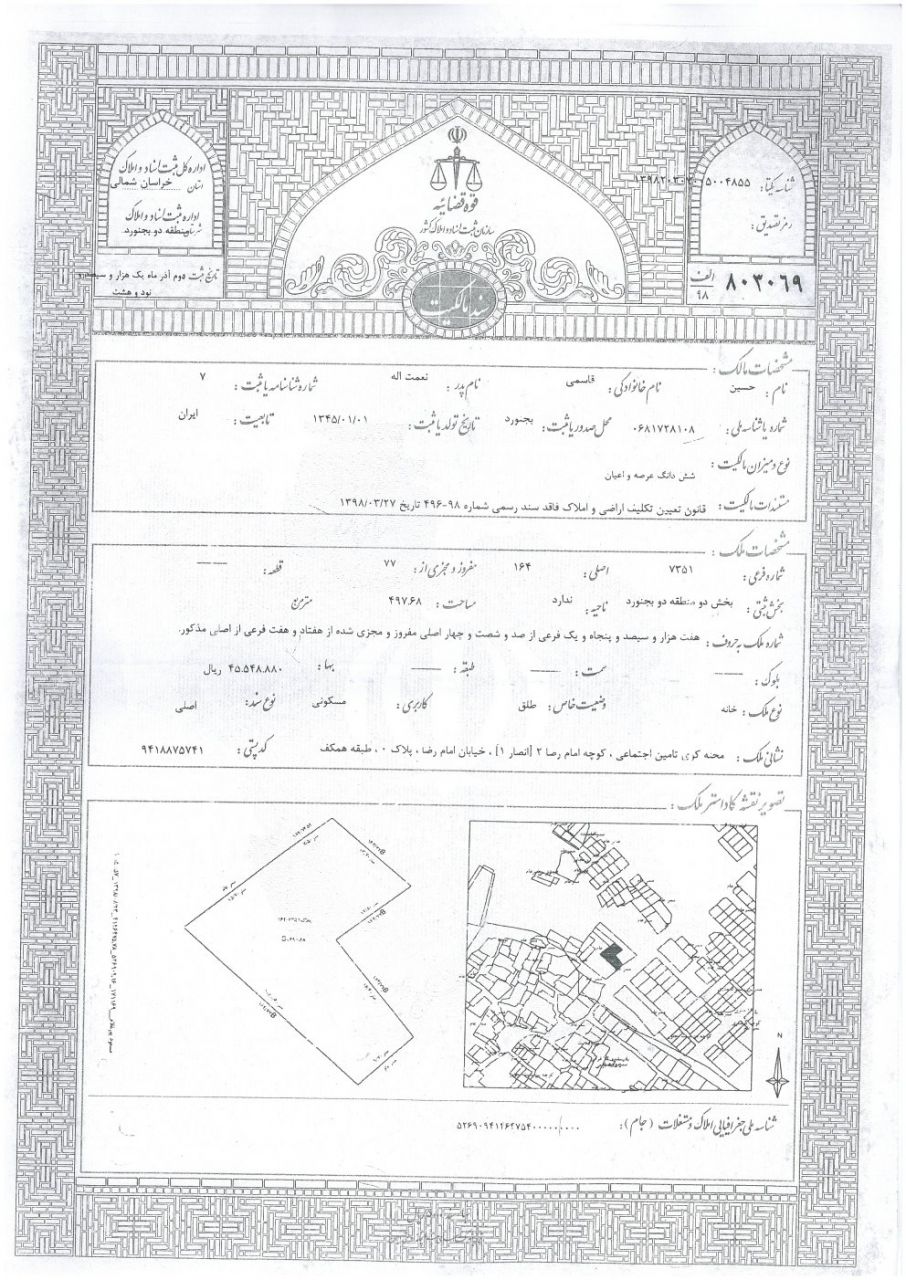 اداره کل ثبت اسناد و املاک
استان خراسان شمالی
اداره ثبت اسناد و املاک
منطقه دو بجنورد
تاریخ ثبت دوم آذر ماه یک هزار و سیصد و
نود و هشت
قوه قضائیه
سازمان ثبت اسناد و املاک کشور
سند مالکیت
شناسه یکتا:
رمز تصدیق:
۸۰۳۰۶۹ الف
۹۸
مشخصات مالک:
نام: حسین نام خانوادگی: قاسمی نام پدر: نعمت اله شماره شناسنامه یا ثبت: ۷
شماره یا شناسه ملی: ۰۶۸۱۷۲۸۱۰۸ محل صدور یا ثبت: بجنورد تاریخ تولد یا ثبت: ۱۳۴۵/۰۱/۰۱ تابعیت: ایران
نوع و میزان مالکیت: شش دانگ عرصه و اعیان
مستندات مالکیت: قانون تعیین تکلیف اراضی و املاک فاقد سند رسمی شماره ۹۸-۴۹۶ تاریخ ۱۳۹۸/۰۳/۲۷
مشخصات ملک:
شماره فرعی: ۷۳۵۱ اصلی: ۱۶۴ مفروز و مجزی از: ۷۷ قطعه: ——
بخش ثبتی: بخش دو منطقه دو بجنورد ناحیه: ندارد مساحت: ۴۹۷.۶۸ مترمربع
شماره ملک به حروف: هفت هزار و سیصد و پنجاه و یک فرعی از صد و شصت و چهار اصلی مفروز و مجزی شده از هفتاد و هفت فرعی از اصلی مذکور.
بلوک: —— سمت: —— طبقه: —— بها: ۴۵.۵۴۸.۸۸۰ ریال
نوع ملک: خانه وضعیت خاص: طلق کاربری: مسکونی نوع سند: اصلی
نشانی ملک: محله کوی تامین اجتماعی ، کوچه امام رضا ۲ [انصار ۱] ، خیابان امام رضا ، پلاک ۰ ، طبقه همکف کد پستی: ۹۴۱۸۸۷۵۷۴۱
تصویر نقشه کاداستر ملک:
N
شناسه ملی جغرافیایی املاک و مستغلات (جام):